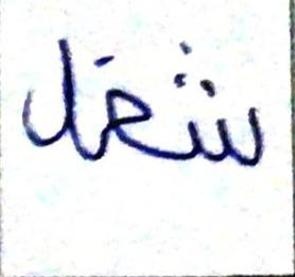 شغل